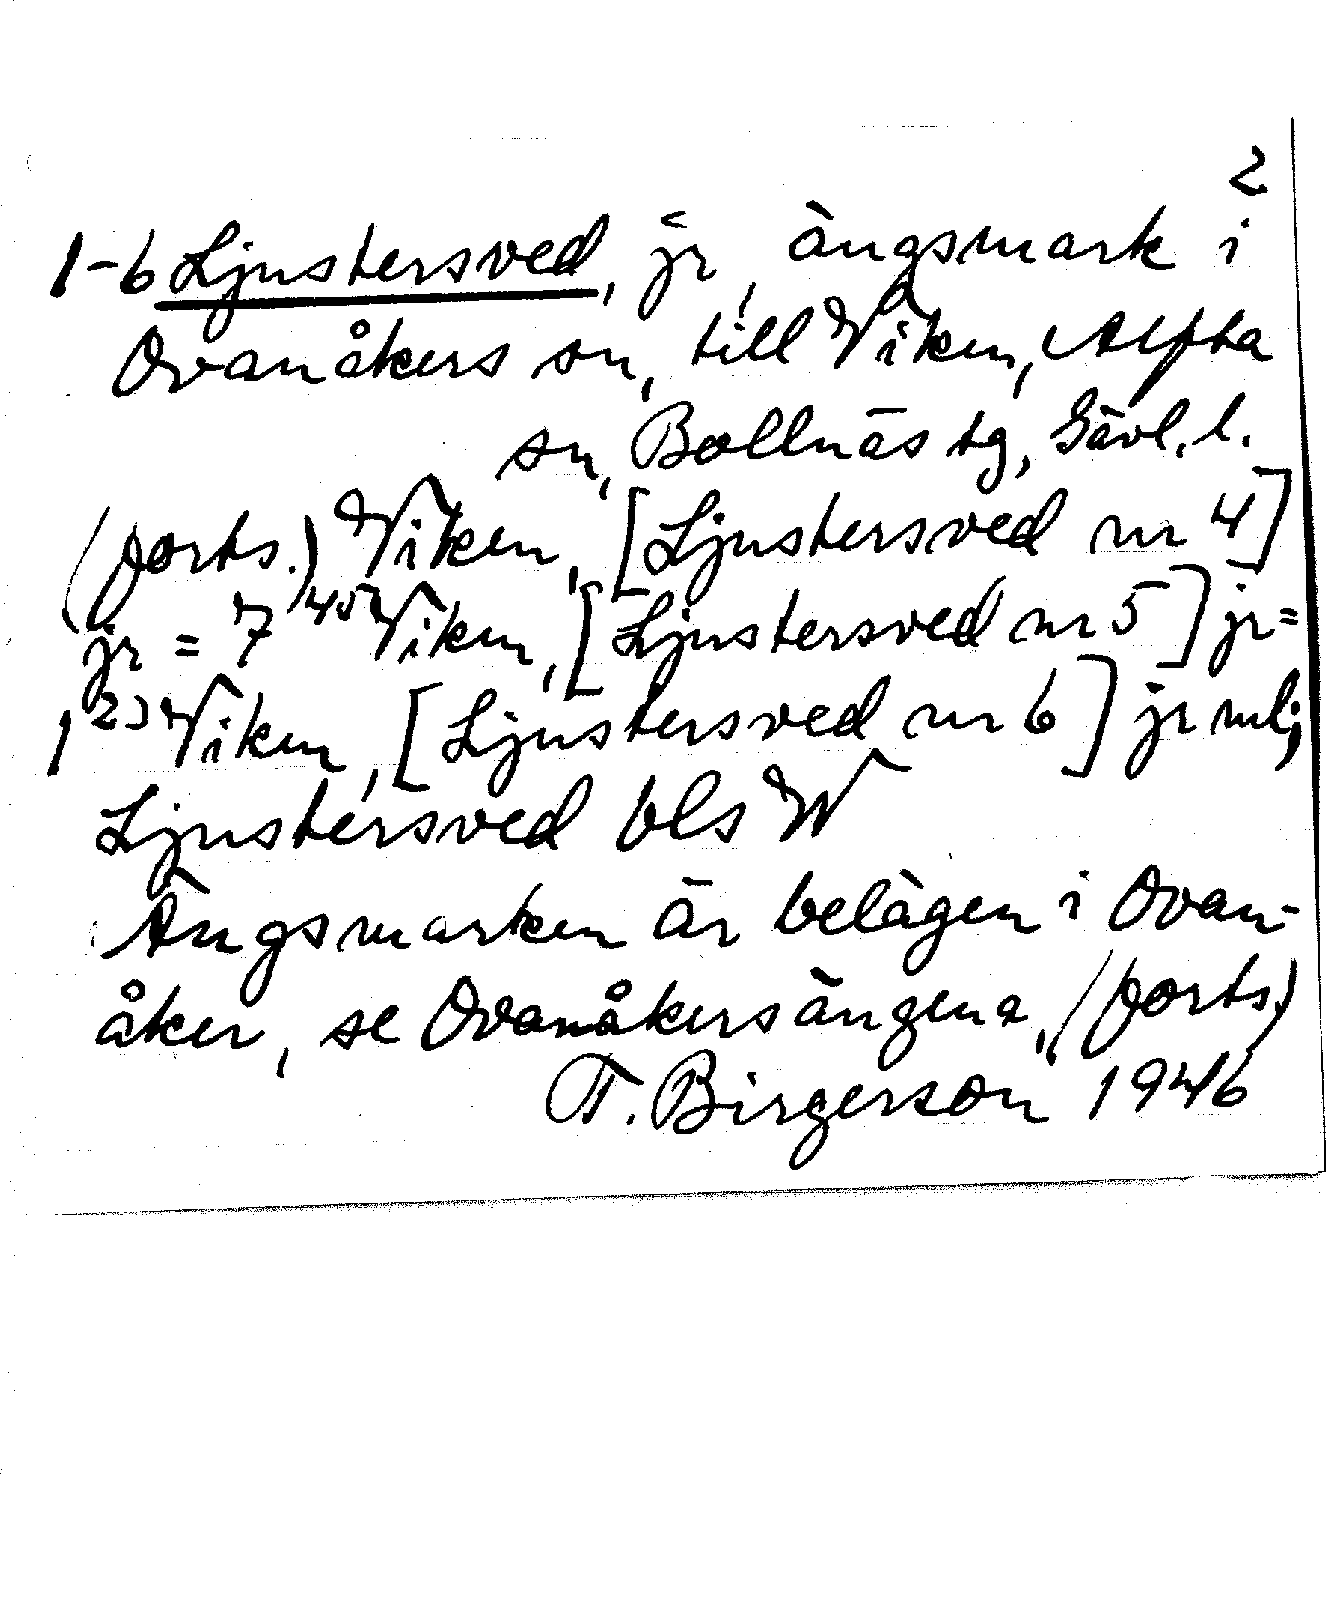 2
1-6 Ljustersved, jr, ängsmark i
Ovanåkers sn, till Viken, Alfta
sn, Bollnäs tg, Gävl. l.
(forts.) Viken, [Ljustersved nr 4]
jr = 7 45 Viken, [Ljustersved nr 5] jr =
1 2) Viken, [Ljustersved nr 6] jr mb;
Ljustersved bls W
Ängsmarken är belägen i Ovan-
åker, se Ovanåkersängena, (forts.)
T. Birgerson 1946